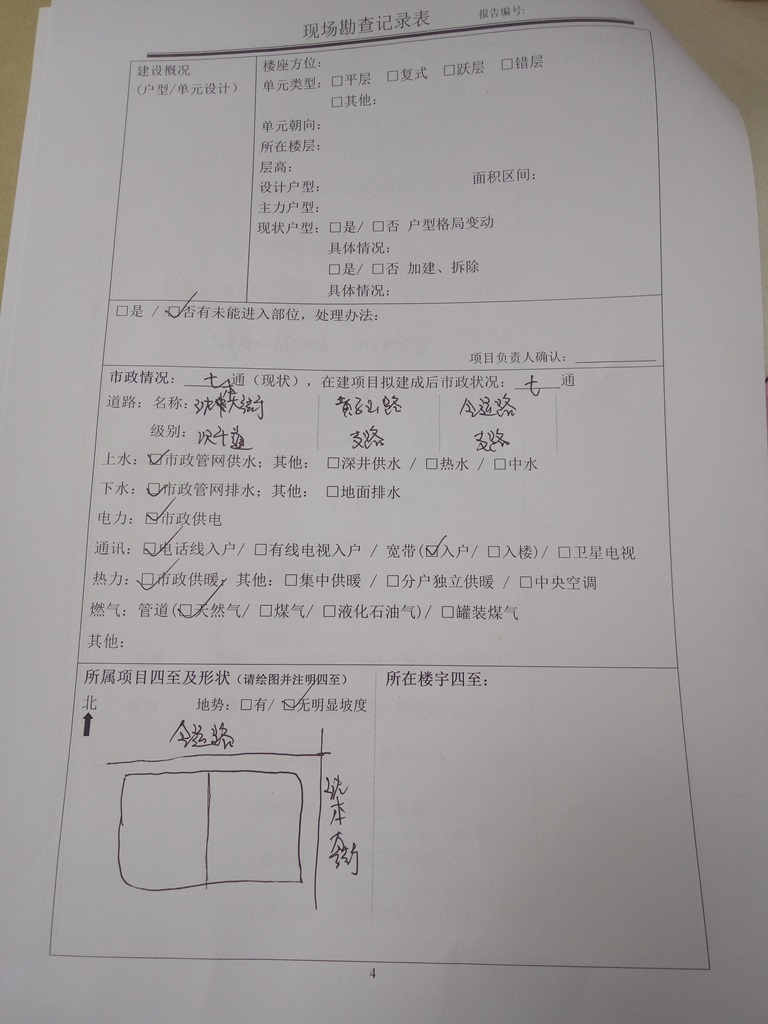 现场勘查记录表
报告编号:
建设概况
(户型/单元设计)
楼座方位:
单元类型: □平层 □复式 □跃层 □错层
□其他:
单元朝向:
所在楼层:
层高:
设计户型: 面积区间:
主力户型:
现状户型: □是/ □否 户型格局变动
具体情况:
□是/ □否 加建、拆除
具体情况:
□是 / ☑否有未能进入部位, 处理办法:
项目负责人确认:
市政情况: 七 通 (现状), 在建项目拟建成后市政状况: 七 通
道路: 名称: 沈本大街 黄子山路 全运路
级别: 次干道 支路 支路
上水: ☑市政管网供水; 其他: □深井供水 / □热水 / □中水
下水: ☑市政管网排水; 其他: □地面排水
电力: ☑市政供电
通讯: ☑电话线入户/ □有线电视入户 / 宽带(☑入户/ □入楼)/ □卫星电视
热力: ☑市政供暖; 其他: □集中供暖 / □分户独立供暖 / □中央空调
燃气: 管道(☑天然气/ □煤气/ □液化石油气)/ □罐装煤气
其他:
所属项目四至及形状 (请绘图并注明四至)
所在楼宇四至:
北
地势: □有/ ☑无明显坡度
全运路
沈本大街
4